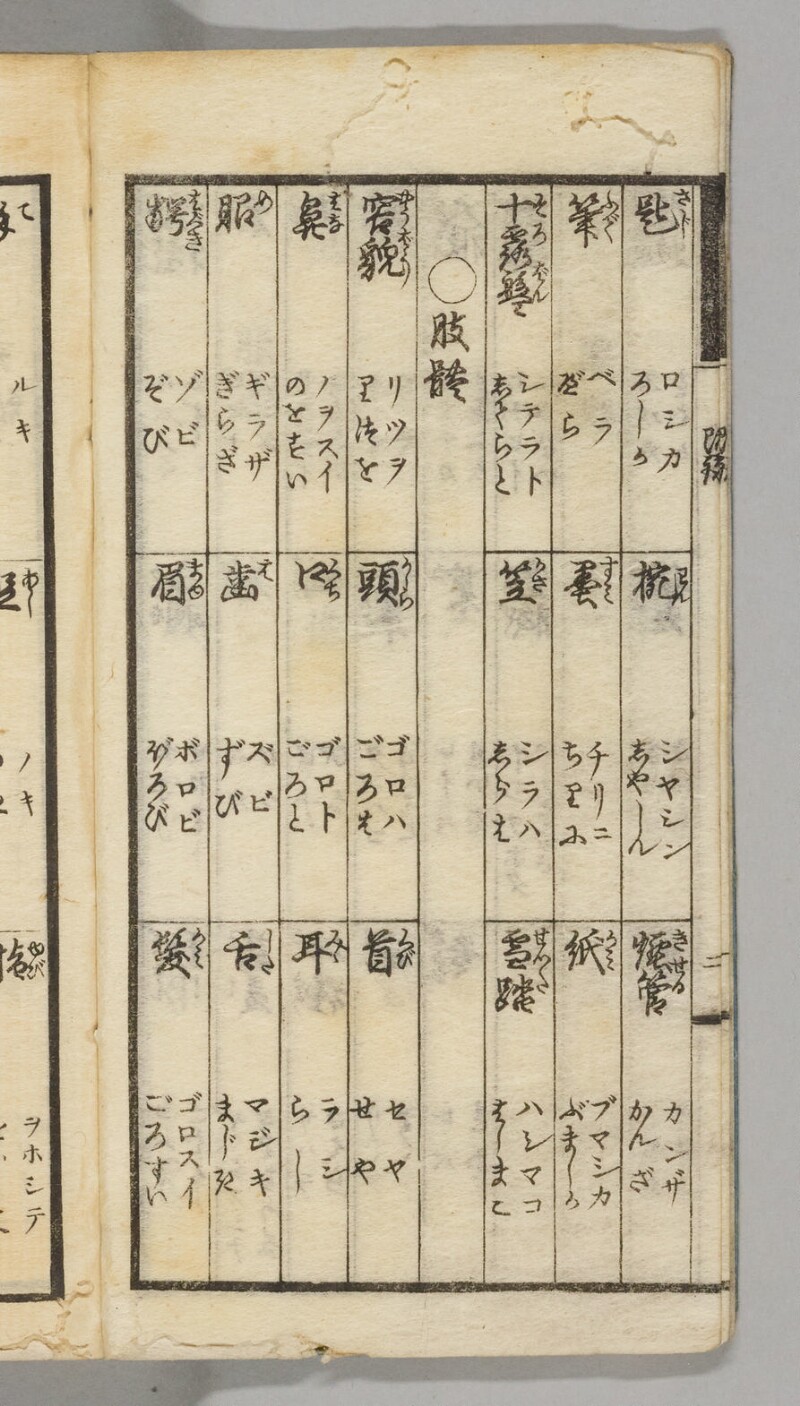 匙 さじ
ロシカ
ろしか
椀 わん
シヤシン
しやしん
煙管 きせる
カンザ
かんざ
筆 ふで
ベラ
べら
墨 すミ
チリニ
ちりに
紙 かミ
ブマシカ
ぶましか
十露盤 そろばん
シテラト
してらと
笠 かさ
シラハ
しらは
雪踏 せつた
ハシマコ
はしまこ
○肢體
容貌
リツヲ
りつを
頭 かしら
ゴロハ
ごろは
首 くび
セヤ
せや
鼻 はな
ノヲスイ
のをすい
口 くち
ゴロト
ごろと
耳 みゝ
ラシ
らし
眼 め
ギラザ
ぎらざ
歯 は
ズビ
ずび
舌 した
マジキ
まじき
齶 はぐき
ゾビ
ぞび
眉 まゆ
ボロビ
ぼろび
髪 かミ
ゴロスイ
ごろすい
二
て
ルキ
足 あし
ノキ
指 ゆび
ヲホシテ